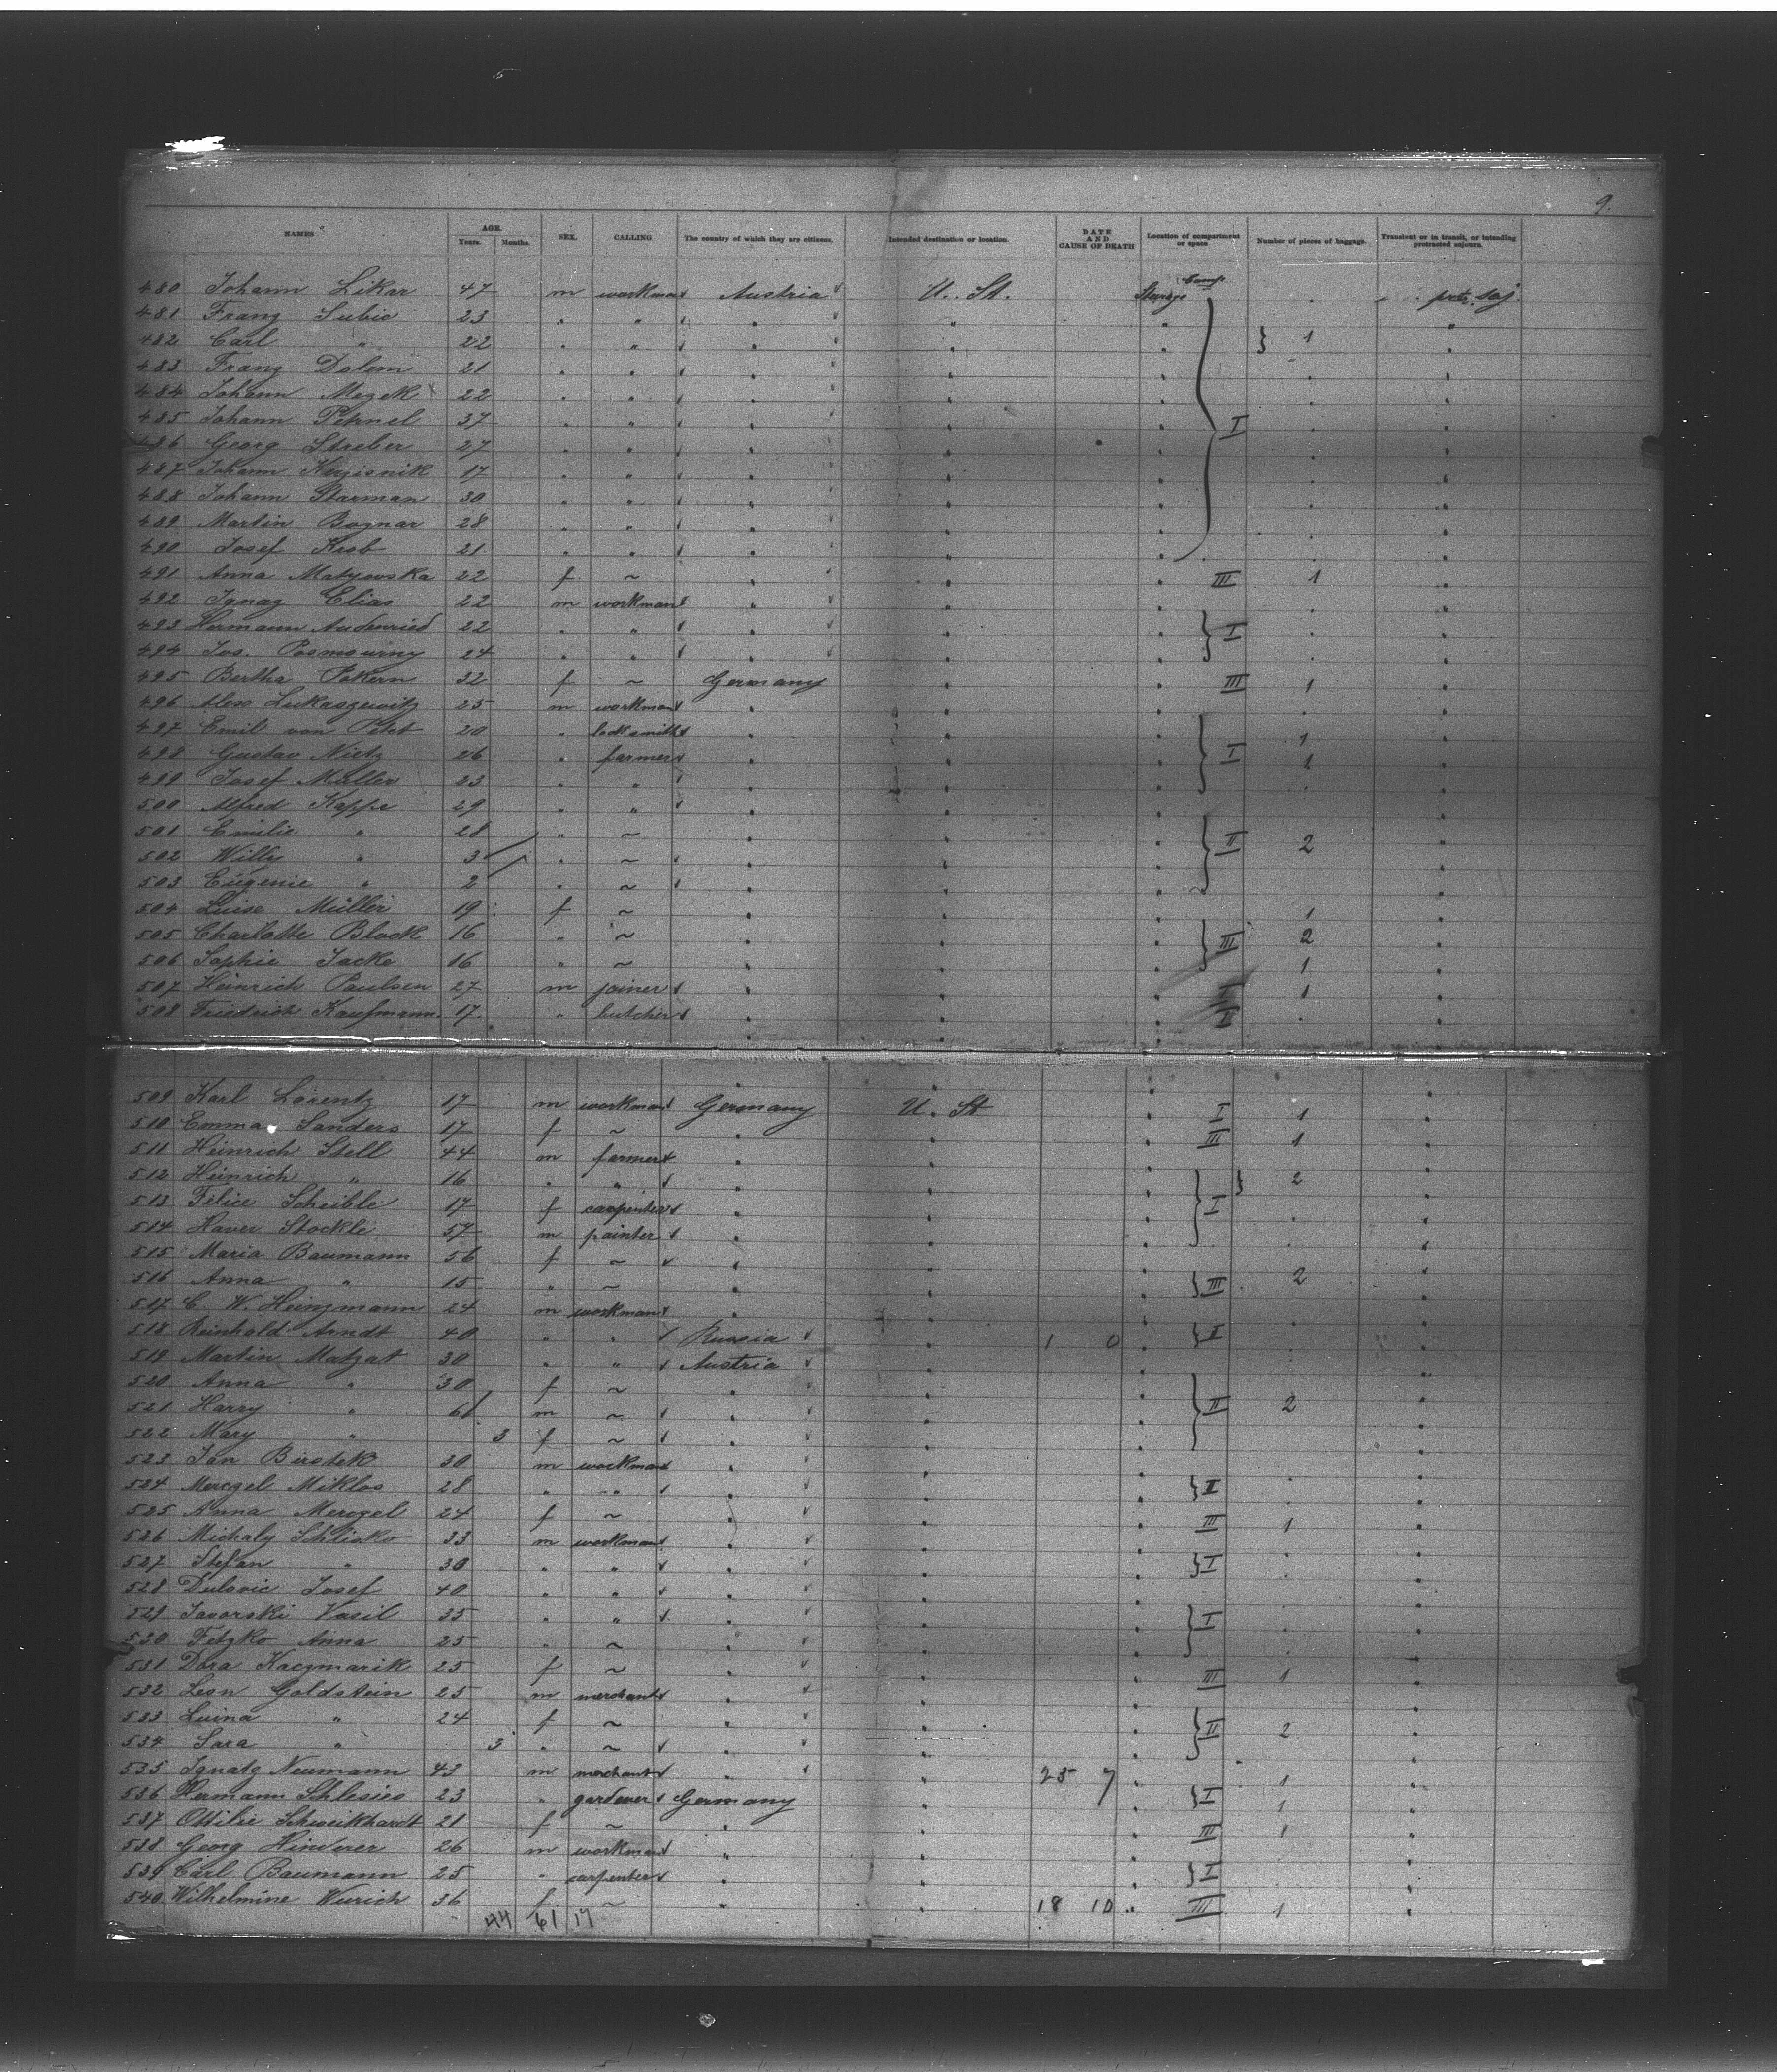 9.
NAMES AGE. Years. Months. SEX. CALLING The country of which they are citizens. Intended destination or location. DATE AND CAUSE OF DEATH Location of compartment or space Number of pieces of baggage. Transient or in transit, or intending protracted sojourn.
480 Johann Likar 47 m workman Austria U. St. Steerage Comp. protr. soj.
481 Franz Subic 23 " " " " " "
482 Carl " 22 " " " " " } 1 "
483 Franz Dolem 21 " " " " " "
484 Johann Mezek 22 " " " " " "
485 Johann Peknel 37 " " " " " I "
486 Georg Streber 27 " " " " " "
487 Johann Krzisnik 17 " " " " " "
488 Johann Starman 30 " " " " " "
489 Martin Bognar 28 " " " " " "
490 Josef Krob 21 " " " " " "
491 Anna Matyevska 22 f ~ " " " III 1 "
492 Ignaz Elias 22 m workman " " " "
493 Hermann Audenried 22 " " " " " } I "
494 Jos. Posmourny 24 " " " " " "
495 Bertha Pakern 32 f ~ Germany " " III 1 "
496 Alex Lukaszewitz 25 m workman " " " "
497 Emil von 20 " locksmith " " " 1 "
498 Gustav Nietz 26 " farmer " " " } I 1 "
499 Josef Müller 23 " " " " " "
500 Alfred Kappe 29 " " " " " "
501 Emilie " 28 " ~ " " " } II 2 "
502 Willy " 3 " ~ " " " "
503 Eugenie " 2 " ~ " " " "
504 Luise Müller 19 f ~ " " " 1 "
505 Charlotte Block 16 " ~ " " " } III 2 "
506 Sophie Jacke 16 " ~ " " " 1 "
507 Heinrich Paulsen 27 m joiner " " " 1 "
508 Friedrich Kaufmann 17 " butcher " " " II "
509 Karl Lorentz 17 m workman Germany U. St " I 1 "
510 Emma Sanders 17 f ~ " " " III 1 "
511 Heinrich Stell 44 m farmer " " " "
512 Heinrich " 16 " " " " " } 2 "
513 Felice Scheible 17 f carpenter " " " I "
514 Xaver Stockle 57 m painter " " " "
515 Maria Baumann 56 f ~ " " " "
516 Anna " 15 " ~ " " " } III 2 "
517 C. W. Heinzmann 24 m workman " " " "
518 Reinhold Arndt 40 " " Russia " 1 0 " } II "
519 Martin Matzat 30 " " Austria " " "
520 Anna " 30 f ~ " " " "
521 Harry " 6 m ~ " " " } II 2 "
522 Mary " 3 f ~ " " " "
523 Jan Birstek 30 m workman " " " "
524 Merczel Miklos 28 " " " " " } II "
525 Anna Merczel 24 f ~ " " " III 1 "
526 Michaly Schlisko 33 m workman " " " "
527 Stefan " 30 " " " " " } I "
528 Dulovic Josef 40 " " " " " "
529 Javorski Vasil 35 " " " " " } I "
530 Fetzko Anna 25 " ~ " " " "
531 Dora Kaczmarik 25 f ~ " " " III 1 "
532 Leon Goldstein 25 m merchant " " " "
533 Luina " 24 f ~ " " " } II 2 "
534 Sara " 3 " ~ " " " "
535 Ignatz Neumann 43 m merchant " " 25 7 " 1 "
536 Hermann Schlesies 23 " gardener Germany " " } I 1 "
537 Ottilie Schweikhardt 21 f ~ " " " III 1 "
538 Georg Hinderer 26 m workman " " " "
539 Carl Baumann 25 " carpenter " " " } I "
540 Wilhelmine Wurich 36 f ~ " " 18 10 " III 1 "
44 61 17